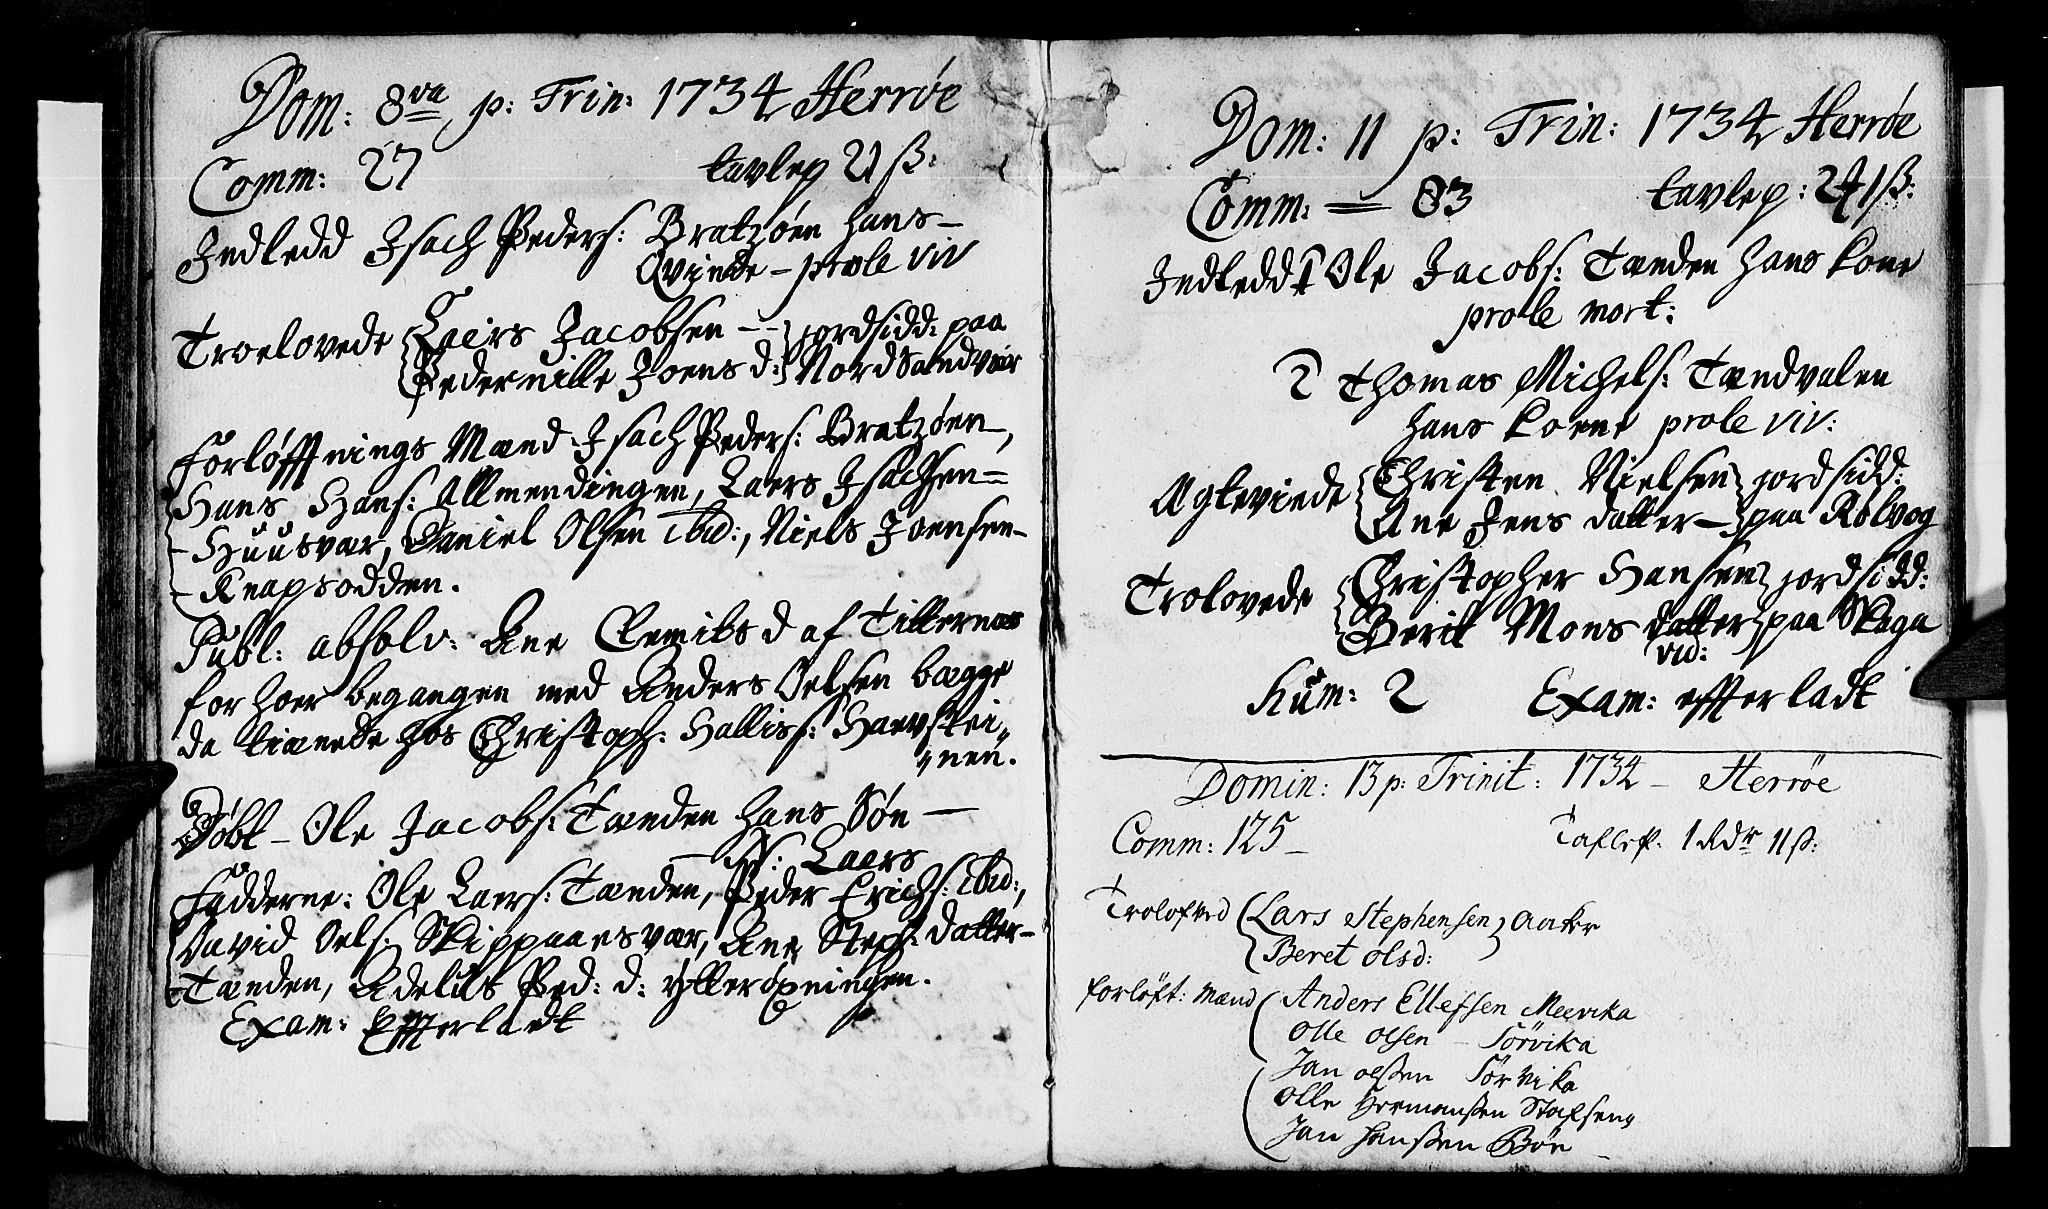 Dom: 8va p: Trin: 1734 Herrøe
Comm: 27 tavlep 21 ß:
Indledd Isach Peders: Bratzøen hans
Qvinde - prole viv
Troelovede Laers Jacobsen - jordsidd: paa
Pedernille Joens d: Nord Sandvær
Forløffnings Mænd Isach Peders: Bratzøen,
Hans Hans: Allmendingen, Laers Isachsen
Huusvær, Daniel Olsen ibid:, Niels Joensen
Knapsodden.
Publ: absolv: Ane Cemits d af Titternæs
for hoer begangen med Anders Oelsen bægge
da tiænede hos Christoph: Halliss: Haevstei
nen.
Døbt - Ole Jacobs: Tænden hans Søn
ss: Laers
Fadderne: Ole Laers: Tænden, Peder Erichs: ibid:,
David Oels: Skippaaesvær, Ane Steph: datter
Tænden, Adelus Ped: d: Ytterøpningen.
Exam: Effterladt
Dom: 11 p: Trin: 1734 Herrøe
Comm: 83 tavlep: 1 ß:
Indledd 1 Ole Jacobs: Tænden hans kone
prole mort:
2 Thomas Michels: Tændvalen
hans koene prole viv:
Ægteviede Christen Nielsen jordsidd:
Ane Jens datter paa Rølvog
Trolovede Christopher Hansen jordsidd:
Berit Mons datter paa Skaga
vid:
Kum: 2 Exam: effterladt
Domin: 13 p: Trinit: 1734 - Herrøe
Comm: 125 - Taflep: 1 Rdr 11 ß:
Trolofved Lars Stephensen Aaker
Beret Olsd:
forløft: mænd Anders Ellefsen Meevika
Olle Olsen - Sörvika
Jan Olssen Sörvika
Olle Hermanssen Stafseng
Jan Hanssen Böe